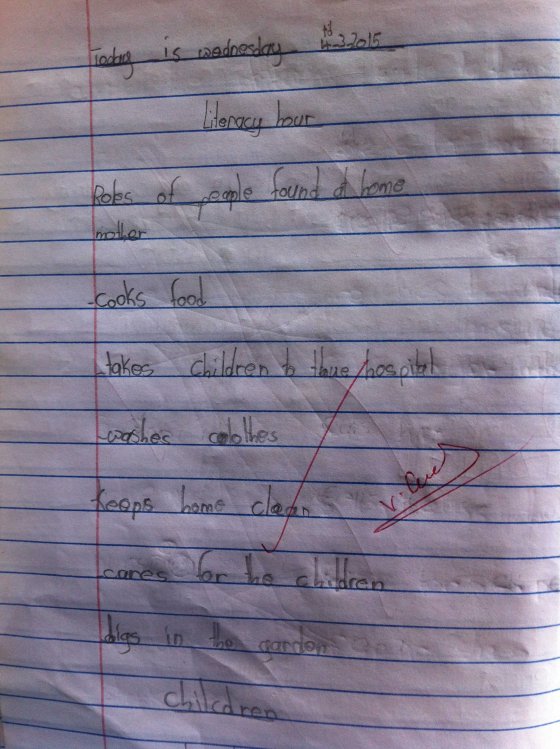 Today is wednesday 4th-3-2015
Literacy hour
Roles of people found at home
mother
-cooks food
-takes children to thue hospital
-washes colothes
keeps home clean
V. Good
-cares for the children
-digs in the garden
chilcdren